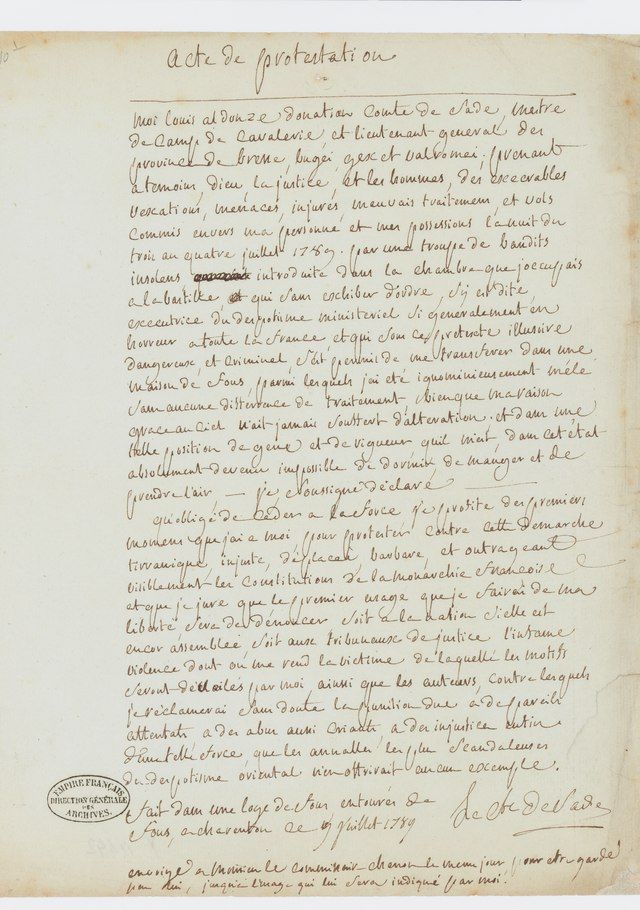 acte de protestation
moi louis aldonze donatien comte de Sade, mestre
de Camp de Cavalerie et lieutenant general des
provinces de bresse, bugéi, gex et valromei, prenant
a temoins, dieu, la justice, et les hommes, des execrables
vexations, menaces, injures, mauvais traitement, et vols
commis envers ma personne et mes possessions la nuit du
trois au quatre juillet 1789. par une troupe de bandits
insolens introduite dans la chambre que j'occupais
a la bastille et qui sans exhiber d'ordre, s'y est dite
executrice du despotisme ministeriel si generalement en
horreur a toute la france, et qui sous ce pretexte illusoire
dangereux, et criminel, s'est permis de me transferer dans une
maison de fous, parmi lesquels j'ai été ignominieusement mêlé
sans aucune difference de traitement, bien que ma raison
grace au ciel n'ait jamais souffert d'alteration. et dans une
telle position de gene et de rigueur qu'il m'est, dans cet état
absolument devenu impossible de dormir de manger et de
prendre l'air — je soussigné déclare
qu'obligé de ceder a la force je profite des premiers
momens que j'ai a moi, pour protester contre cette demarche
tirannique, injuste, déplacée, barbare, et outrageant
visiblement les Constitutions de la monarchie françoise
et que je jure que le premier usage que je fairai de ma
liberté sera de dénoncer soit a la nation si elle est
encor assemblée, soit aux tribunaux de justice l'infame
violence dont on me rend la victime de laquelle les motifs
seront détailés par moi, ainsi que les auteurs, contre lesquels
je réclamerai sans doute la punition due a de pareils
attentats a des abus aussi criants, a des injustice enfin
d'une telle force que les annalles les plus scandaleuses
du despotisme oriental n'en offrirait aucun exemple.
fait dans une loge de fous entourés de
fous, a charenton ce 9 juillet 1789
le Cte de Sade
envoyé a monsieur le commissaire chenon le meme jour pour etre gardé
par lui, jusqu'a l'usage qui lui sera indiqué par moi.
EMPIRE FRANÇAIS
DIRECTION GÉNÉRALE
DES
ARCHIVES.